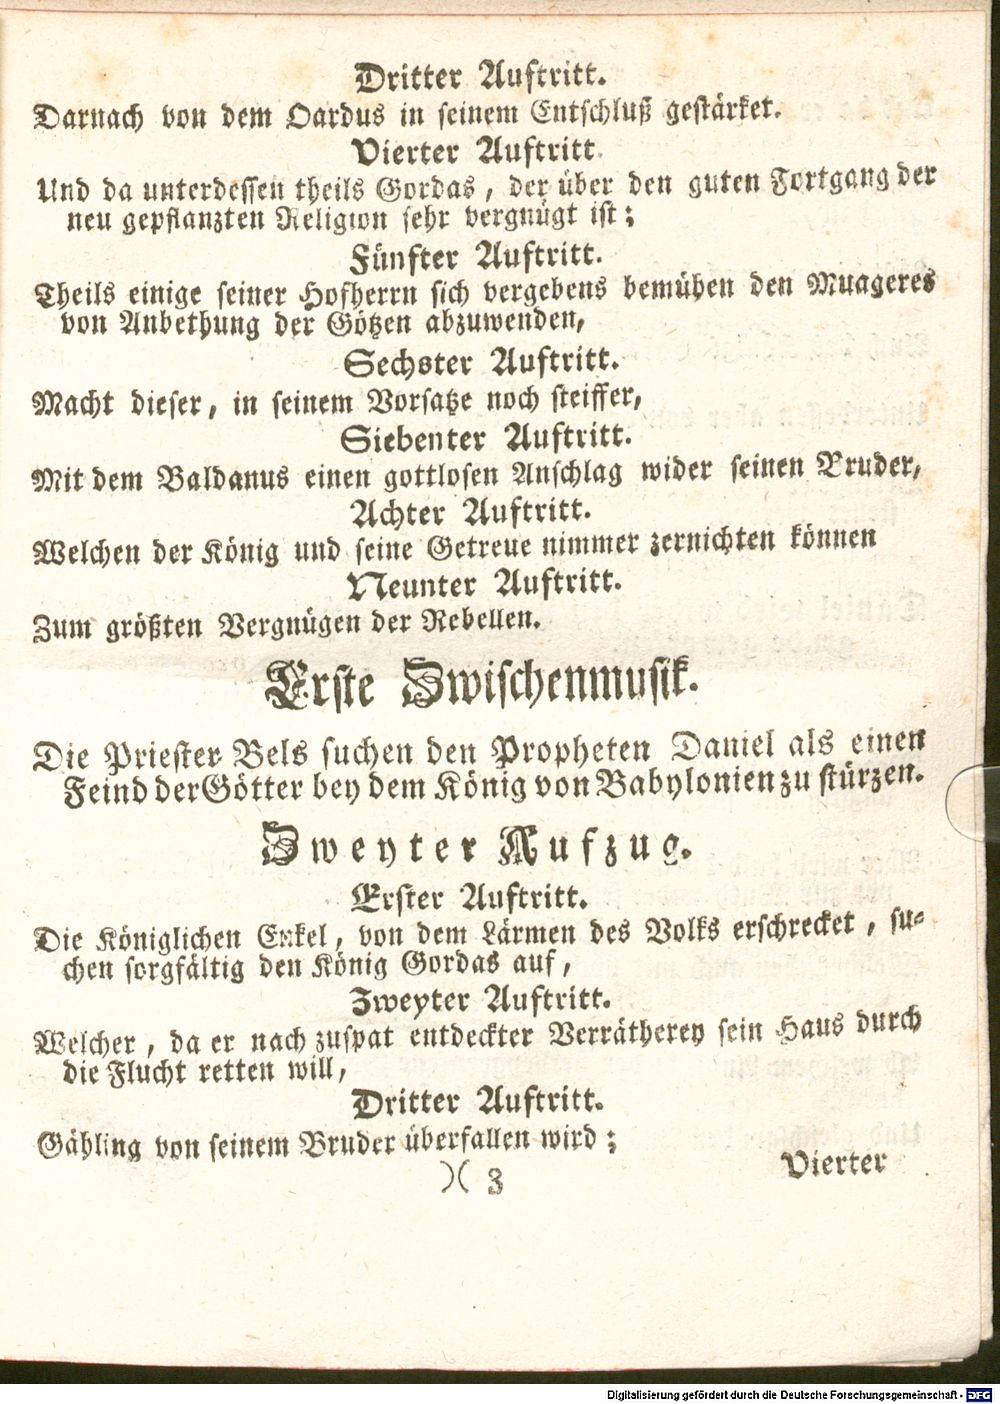 Dritter Auftritt.
Darnach von dem Oardus in seinem Entschluß gestärket.
Vierter Auftritt.
Und da unterdessen theils Gordas, der über den guten Fortgang der
neu gepflanzten Religion sehr vergnügt ist;
Fünfter Auftritt.
Theils einige seiner Hofherrn sich vergebens bemühen den Muageres
von Anbethung der Götzen abzuwenden,
Sechster Auftritt.
Macht dieser, in seinem Vorsatze noch steiffer,
Siebenter Auftritt.
Mit dem Baldanus einen gottlosen Anschlag wider seinen Bruder,
Achter Auftritt.
Welchen der König und seine Getreue nimmer zernichten können
Neunter Auftritt.
Zum größten Vergnügen der Rebellen.
Erste Zwischenmusik.
Die Priester Bels suchen den Propheten Daniel als einen
Feind der Götter bey dem König von Babylonien zu stürzen.
Zweyter Aufzug.
Erster Auftritt.
Die Königlichen Enkel, von dem Lärmen des Volks erschrecket, su-
chen sorgfältig den König Gordas auf,
Zweyter Auftritt.
Welcher, da er nach zuspat entdeckter Verrätherey sein Haus durch
die Flucht retten will,
Dritter Auftritt.
Gähling von seinem Bruder überfallen wird;
)( 3
Vierter
Digitalisierung gefördert durch die Deutsche Forschungsgemeinschaft - DFG